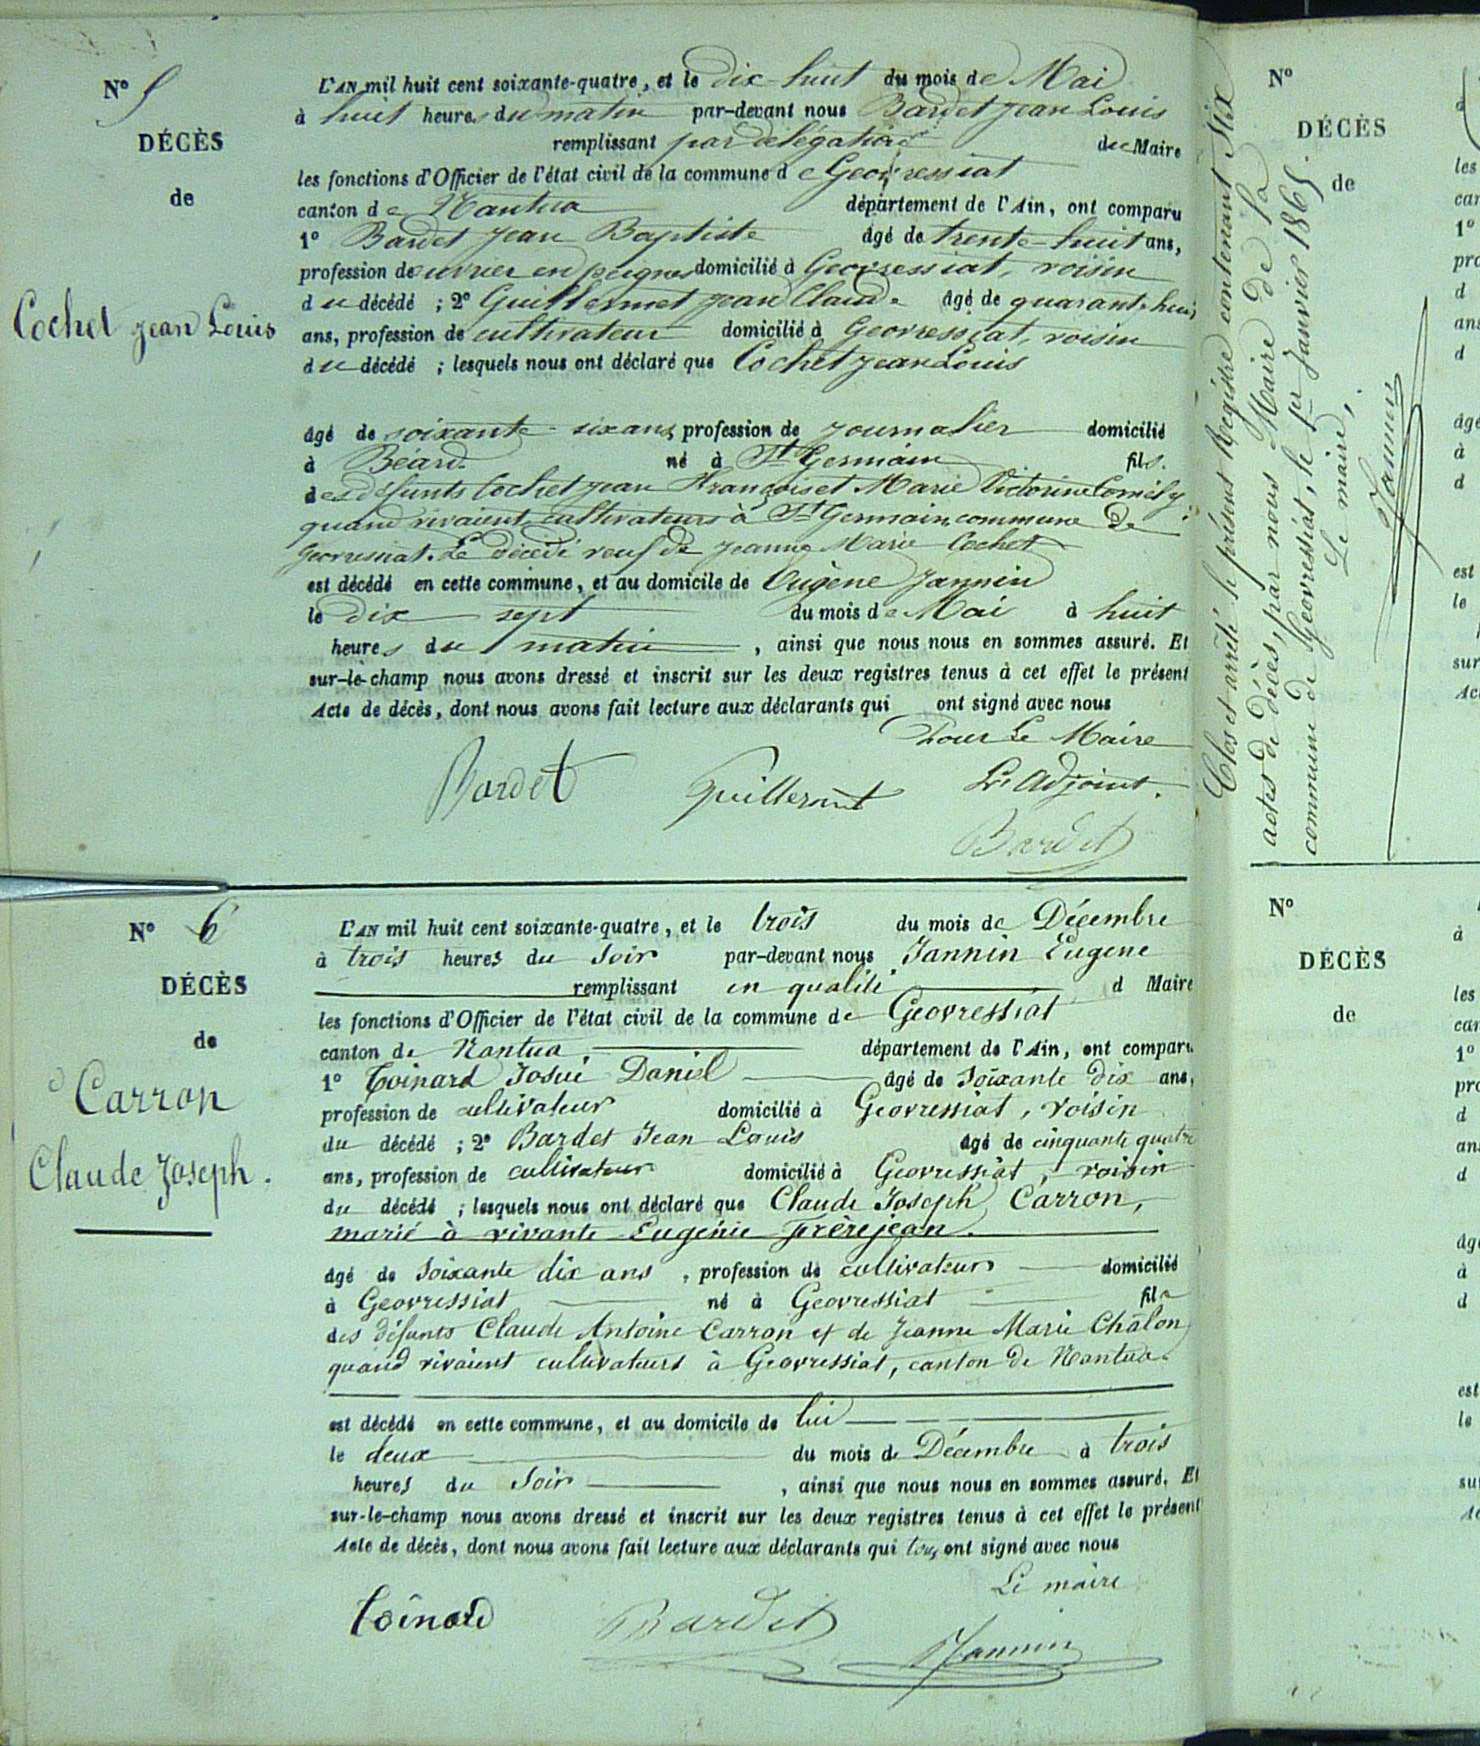 N° 5
DÉCÈS
de
Cochet Jean Louis
L'AN mil huit cent soixante-quatre, et le dix-huit du mois de Mai
à huit heures du matin par-devant nous Bardet Jean Louis
remplissant par délégation du Maire
les fonctions d'Officier de l'état civil de la commune de Geovressiat
canton de Nantua département de l'Ain, ont comparu
1° Bardet Jean Baptiste âgé de trente-huit ans,
profession de ouvrier en peignes domicilié à Geovressiat, voisin
du décédé ; 2° Guillermet Jean Claude âgé de quarante huit
ans, profession de cultivateur domicilié à Geovressiat, voisin
du décédé ; lesquels nous ont déclaré que Cochet Jean Louis
âgé de soixante-six ans, profession de journalier domicilié
à Béard né à St Germain fils
des défunts Cochet Jean François et Marie Victorine
quand vivaient cultivateurs à St Germain, commune de
Geovressiat. Le décédé veuf de Jeanne Marie Cochet
est décédé en cette commune, et au domicile de Eugène Jannin
le dix-sept du mois de Mai à huit
heures du matin, ainsi que nous nous en sommes assuré. Et
sur-le-champ nous avons dressé et inscrit sur les deux registres tenus à cet effet le présent
Acte de décès, dont nous avons fait lecture aux déclarants qui ont signé avec nous
Pour Le Maire
L'Adjoint.
Bardet Guillermet
Bardet
N° 6
DÉCÈS
de
Carron
Claude Joseph.
L'AN mil huit cent soixante-quatre, et le trois du mois de Décembre
à trois heures du Soir par-devant nous Jannin Eugene
remplissant en qualité d Maire
les fonctions d'Officier de l'état civil de la commune de Geovressiat
canton de Nantua département de l'Ain, ont comparu
1° Toinard Josué Daniel âgé de Soixante dix ans,
profession de cultivateur domicilié à Geovressiat, voisin
du décédé ; 2° Bardet Jean Louis âgé de cinquante quatre
ans, profession de cultivateur domicilié à Geovressiat, voisin
du décédé ; lesquels nous ont déclaré que Claude Joseph Carron,
marié à vivante Eugénie Frèrejean.
âgé de Soixante dix ans, profession de cultivateur domicilié
à Geovressiat né à Geovressiat fils
des défunts Claude Antoine Carron et de Jeanne Marie Chalon
quand vivaient cultivateurs à Geovressiat, canton de Nantua.
est décédé en cette commune, et au domicile de lui
le deux du mois de Décembre à trois
heures du Soir, ainsi que nous nous en sommes assuré. Et
sur-le-champ nous avons dressé et inscrit sur les deux registres tenus à cet effet le présent
Acte de décès, dont nous avons fait lecture aux déclarants qui tous ont signé avec nous
Le maire
Toinard Bardet Jannin
Clos et arrêté le présent Registre contenant Six
actes de décès, par nous Maire de la
commune de Geovressiat, le 1er Janvier 1865.
Le maire,
Jannin
N°
DÉCÈS
de
les
1°
d
d
à
d
est
le
sur
N°
DÉCÈS
de
à
les
1°
d
d
à
d
est
le